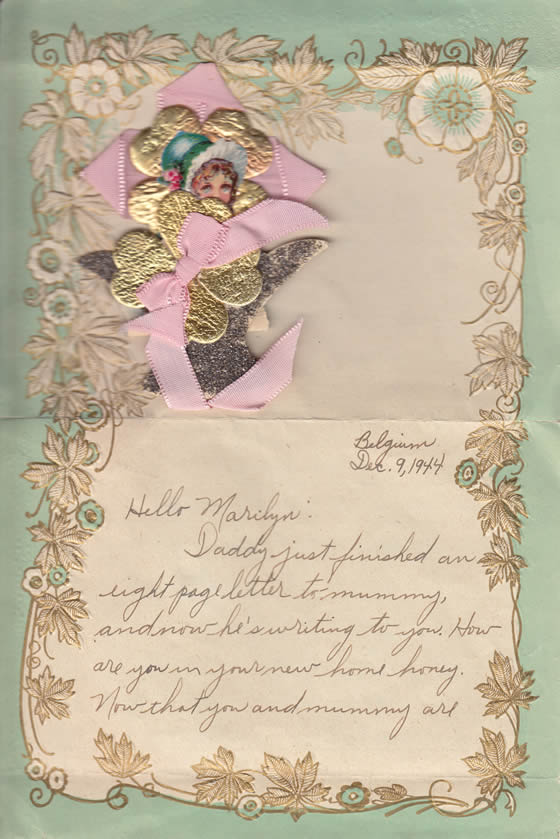 Belgium
Dec. 9, 1944
Hello Marilyn:
Daddy just finished an
eight page letter to mummy,
and now he's writing to you. How
are you in your new home honey.
Now that you and mummy are